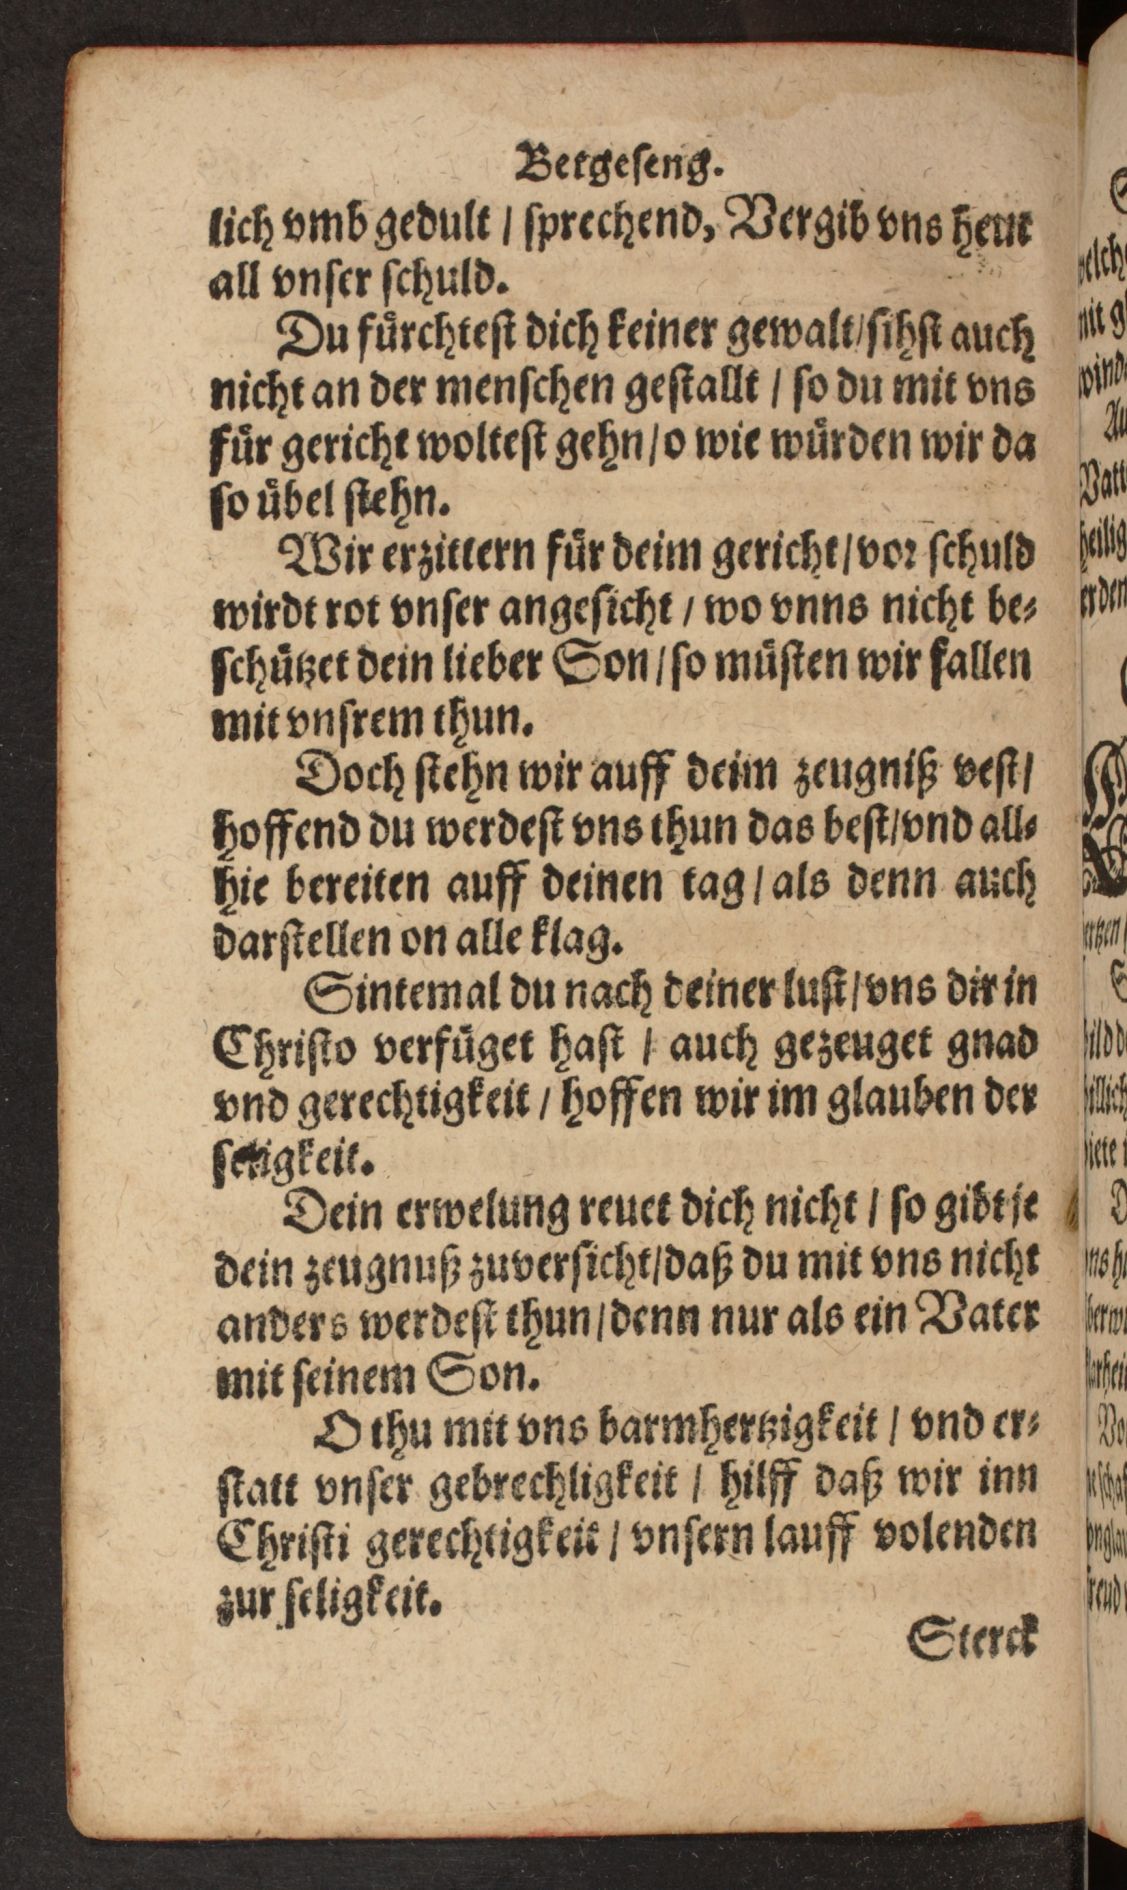 Betgeseng.
lich vmb gedult / sprechend, Vergib vns heut
all vnser schuld.
Du fürchtest dich keiner gewalt / sihst auch
nicht an der menschen gestallt / so du mit vns
für gericht woltest gehn / o wie würden wir da
so übel stehn.
Wir erzittern für deim gericht / vor schuld
wirdt rot vnser angesicht / wo vnns nicht be-
schützet dein lieber Son / so müsten wir fallen
mit vnsrem thun.
Doch stehn wir auff deim zeugniß vest /
hoffend du werdest vns thun das best / vnd all-
hie bereiten auff deinen tag / als denn auch
darstellen on alle klag.
Sintemal du nach deiner lust / vns dir in
Christo verfüget hast / auch gezeuget gnad
vnd gerechtigkeit / hoffen wir im glauben der
seligkeit.
Dein erwelung reuet dich nicht / so gibt je
dein zeugnuß zuversicht / daß du mit vns nicht
anders werdest thun / denn nur als ein Vater
mit seinem Son.
O thu mit vns barmhertzigkeit / vnd er-
statt vnser gebrechligkeit / hilff daß wir inn
Christi gerechtigkeit / vnsern lauff volenden
zur seligkeit.
Sterck